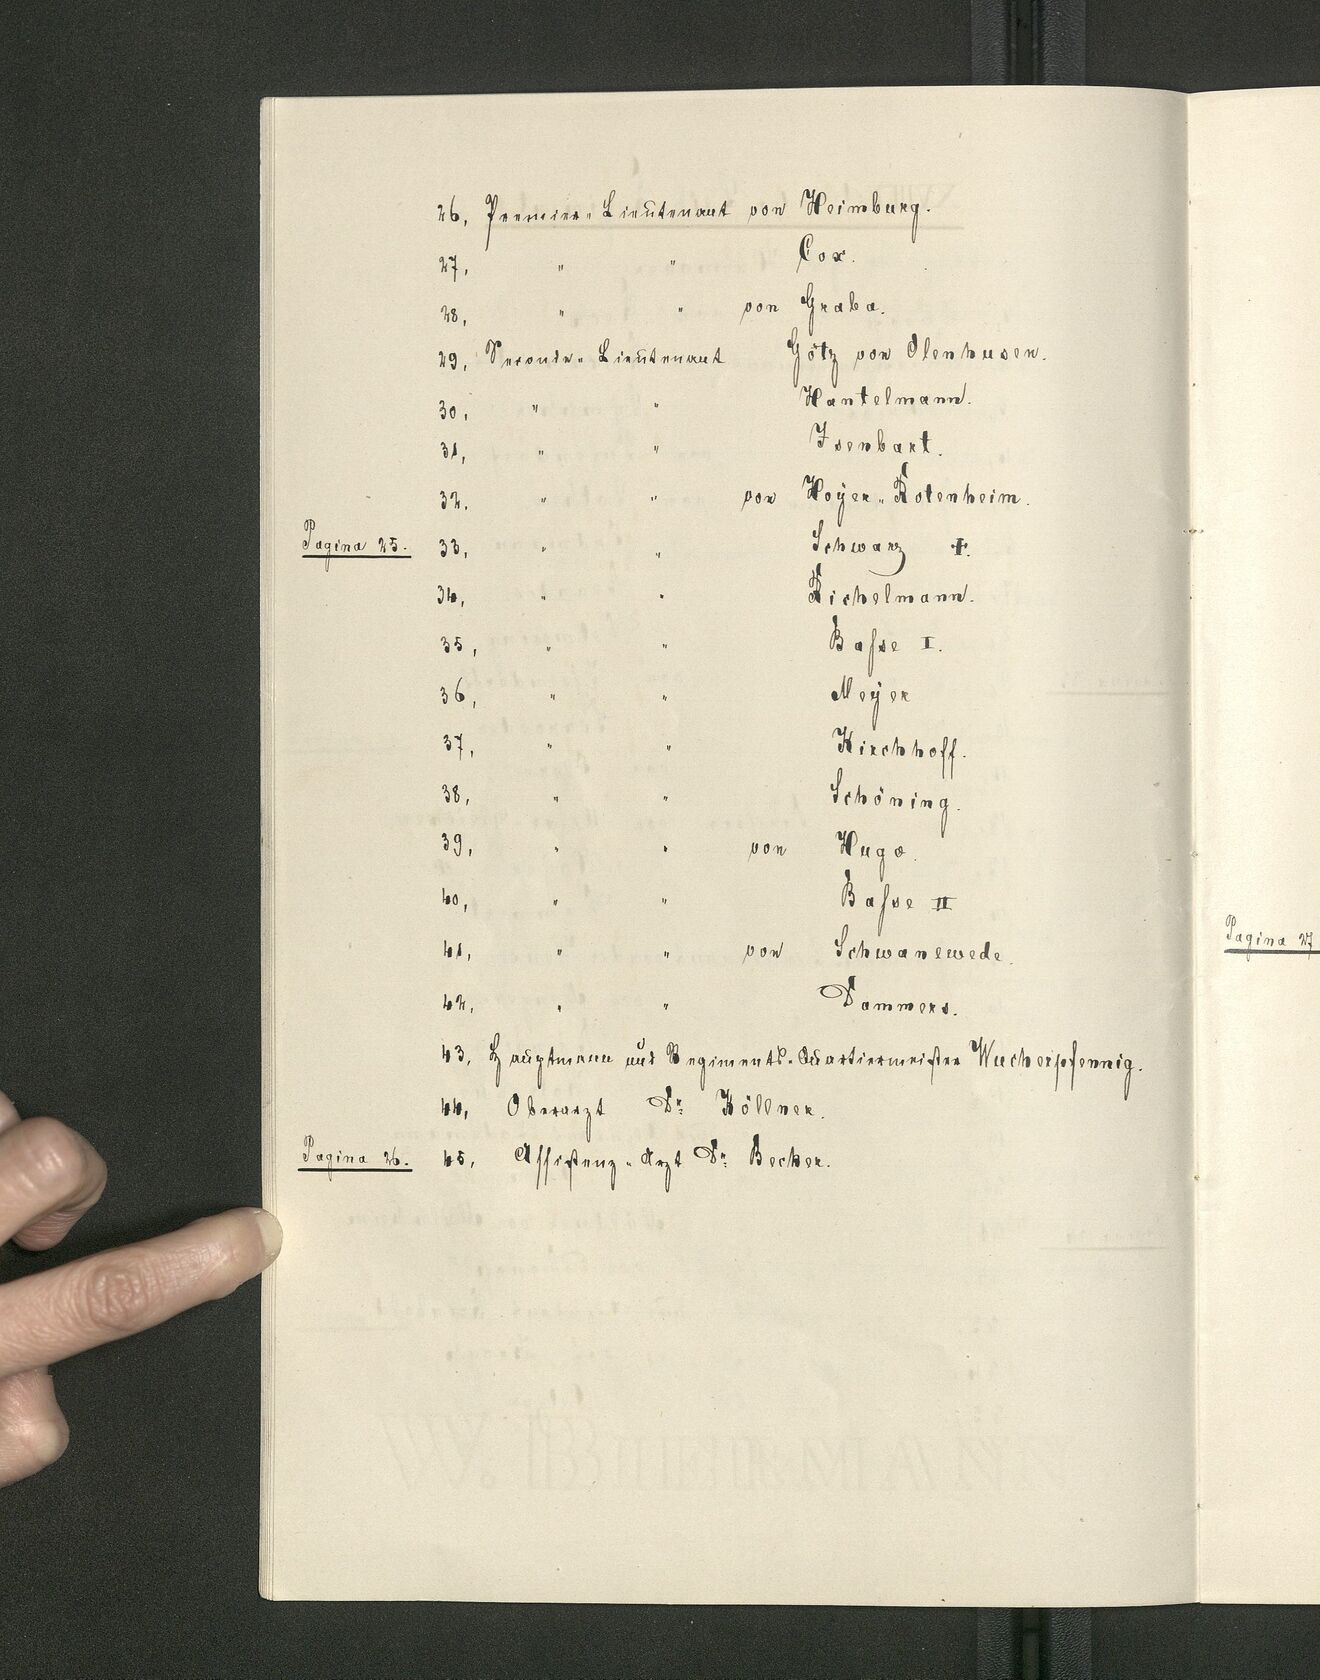 26, Premier-Lieutenant von Heimburg.
27, " " Cox.
28, " " von Graba.
29, Seconde-Lieutenant Götz von Olenhusen.
30, " " Hantelmann.
31, " " Isenbart.
32. " " von Hoÿer-Rotenheim.
Pagina 25. 33, " " Schwarz I.
34, " " Richelmann.
35, " " Baſse I.
36, " " Meÿer
37, " " Kirchhoff.
38, " " Schöning.
39, " " von Hugo.
40, " " Baſse II
41, " " von Schwanewede.
42, " " Dammers.
43, Hauptmann und Regiments-Quartiermeister Wucherpfennig.
44, Oberarzt Dr. Köllner.
Pagina 26. 45, Aſſistenz-Arzt Dr. Becker.
Pagina 27